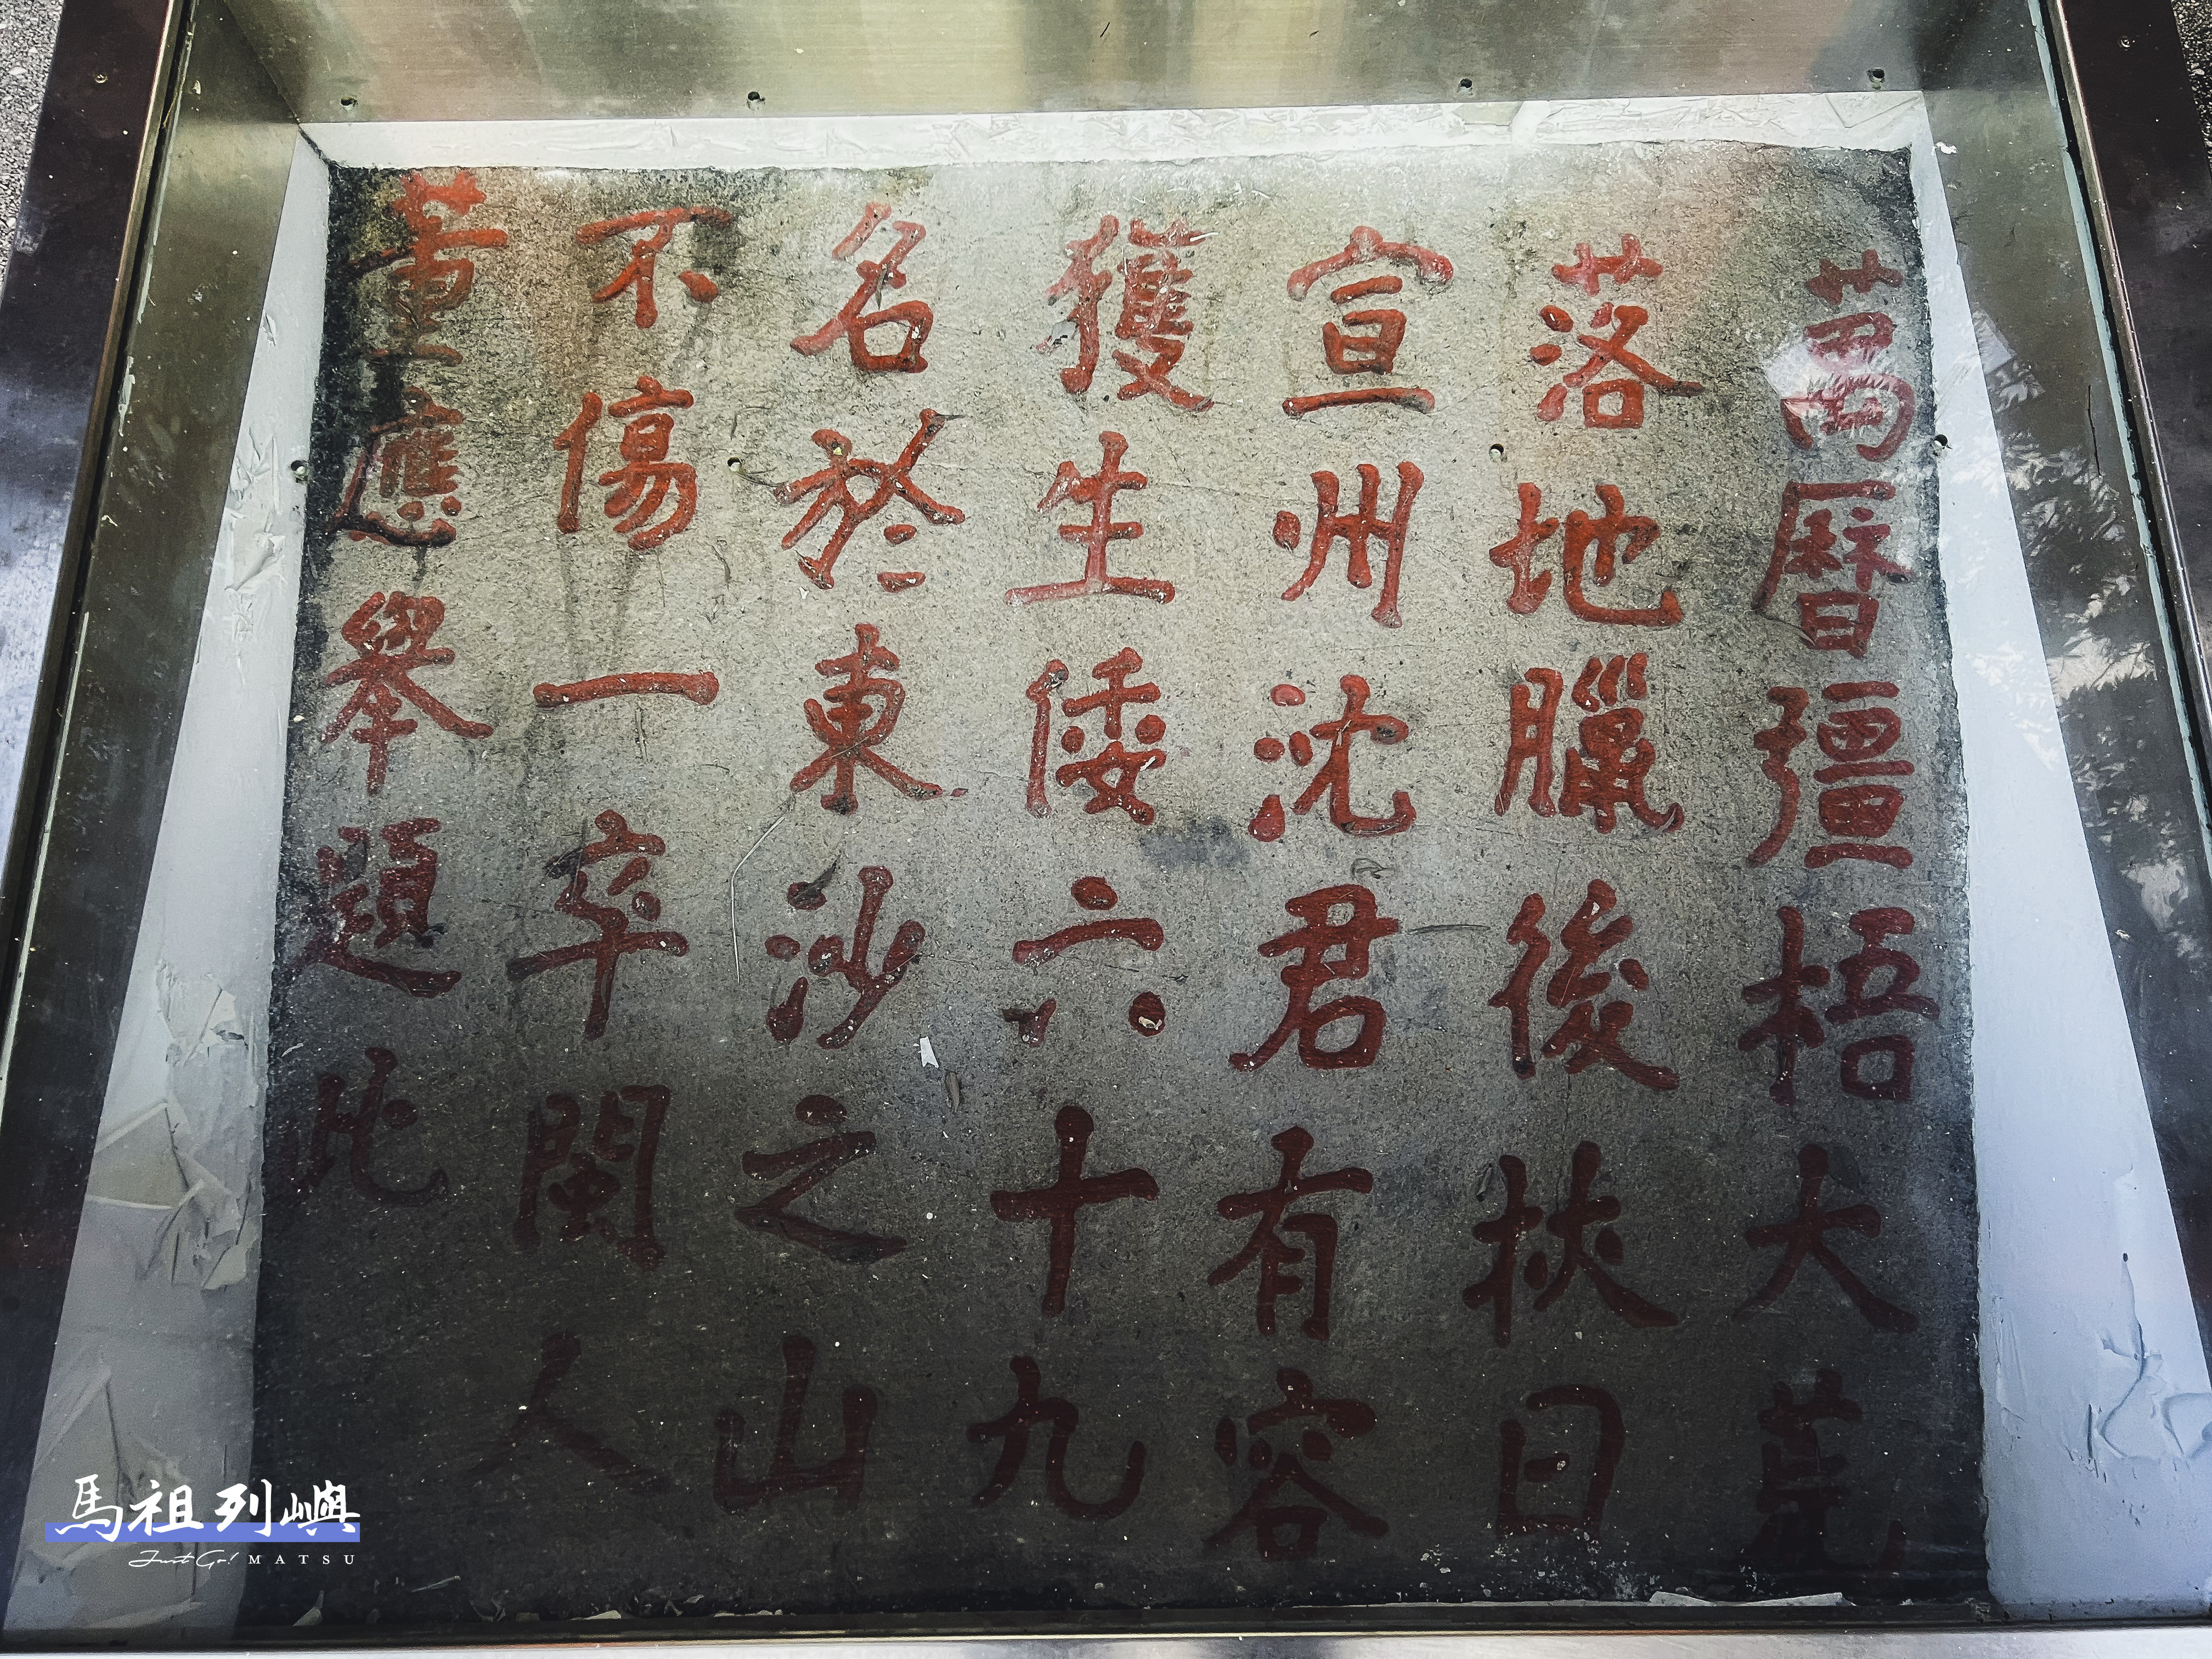 萬曆彊梧大荒
落地臘後挾日
宣州沈君有容
獲生倭六十九
名於東沙之山
不傷一卒閩人
董應舉題此
馬祖列嶼
Just Go! MATSU